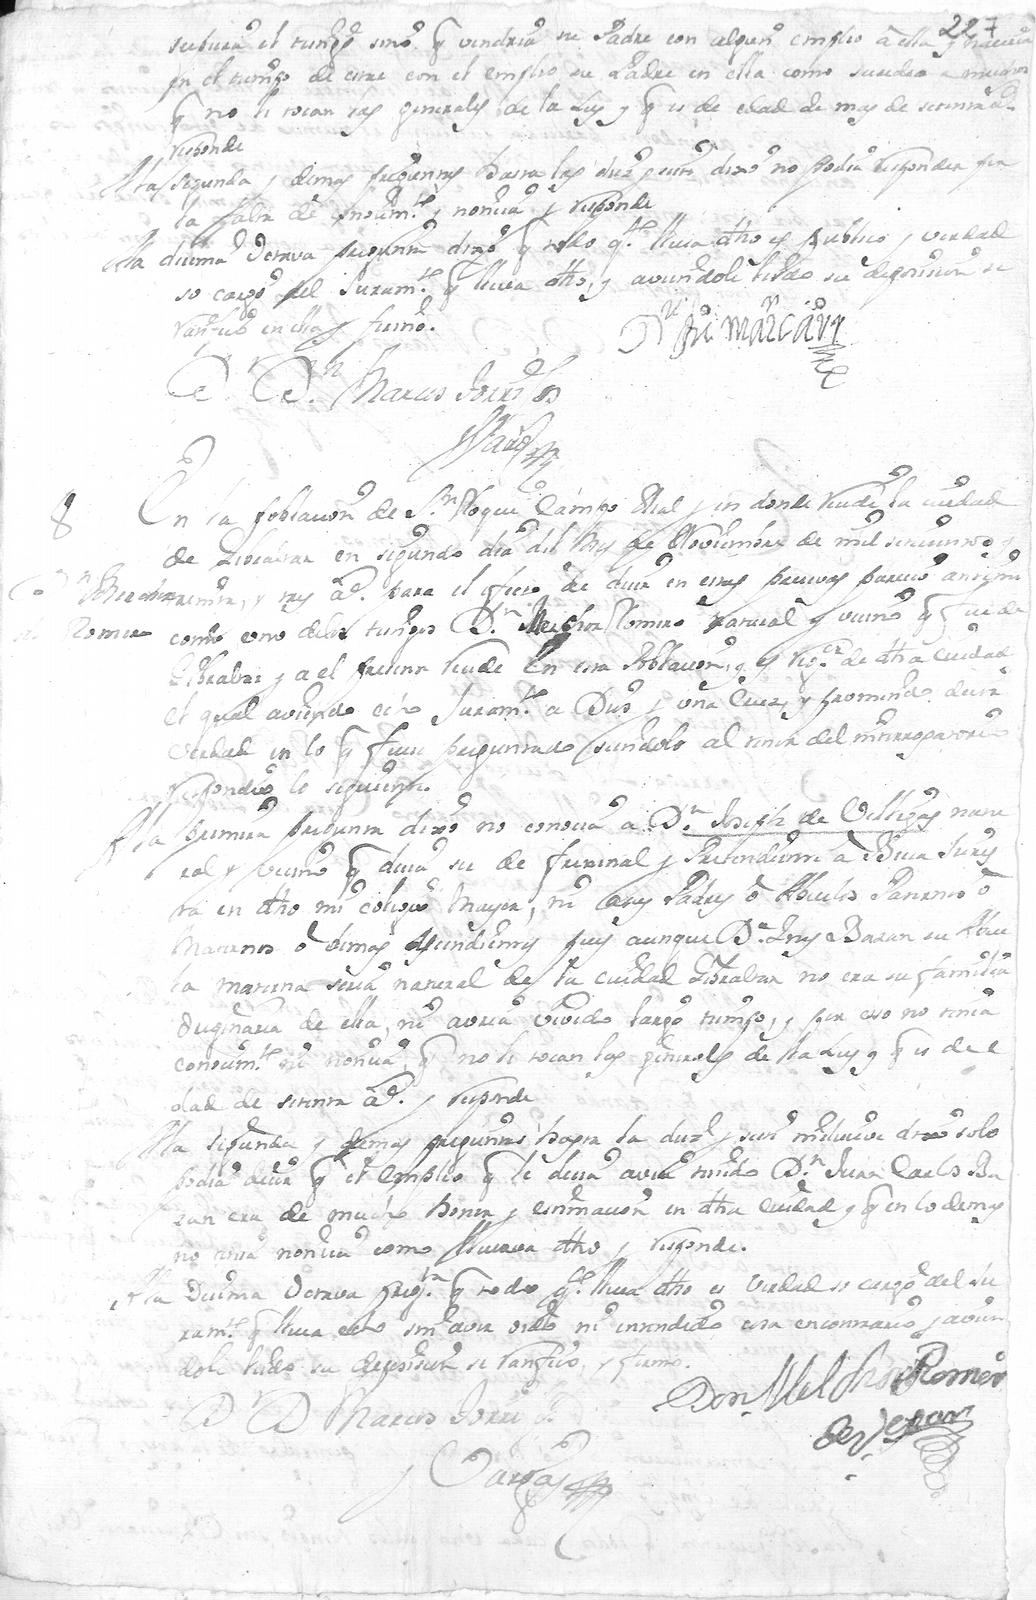 227
el tiempo sino q vendria su Padre con algun empleo a ella y naceria
en el tiempo de estar con el empleo su Padre en ella como sucede a muchos
q no le tocan las generales de la Ley y q es de edad de mas de setenta aˢ
responde
A la segunda y demas preguntas hasta la diez y siete dixo no podia responder por
la falta de conocimᵗᵒ y noticia y responde
A la decima octava pregunta dixo q todo qᵗᵒ lleva dho es publico y verdad
so cargo del Juramᵗᵒ q lleva dho, y aviendole leido su deposicion se
ratifico en ella y firmo.
Dⁿ
D. Dⁿ Marcos Torres
8
En la Poblacion de Sⁿ Roque Campo Rl y en donde reside la ciudad
de Gibraltar en segundo dia del Mes de Noviembre de mil setecientos y
y tres aˢ. para el fin de dicir en estas pruevas parecio ante mi
Dⁿ Melchor
Romero
como uno de los testigos Dⁿ Melchor Romero natural y vecino q fue de
Gibraltar y a el presente reside en esta Poblacion, y es regᵒʳ de dha Ciudad
el qual aviendo echo Juramᵗᵒ a Dios y una Cruz y prometido decir
verdad en lo q fuere preguntado siendolo al tenor del interrogatorio
respondio lo siguiente.
A la primera pregunta dixo no conocia a Dⁿ Joseph de Villegas natu
ral y vecino q decia ser de y Pretendiente a Beca Juris
ta en dho mi colegio Mayor, ni a sus Padres o Abuelos Paternos o
Maternos o demas Asendientes pues aunque Dᵃ Ines Bazan su Abue
la materna seria natural de la ciudad Gibraltar no era su familia
originaria de ella, ni avria vivido largo tiempo, y por eso no tenia
conocimᵗᵒ ni noticia, q no le tocan las generales de la Ley y q es de e
dad de setenta aˢ. y responde
A la segunda y demas preguntas hasta la diez y siete inclusive dixo solo
podia decir q el empleo q le decia avia tenido Dⁿ Juan Carlos Ba
zan era de mucho honor y estimacion en dha Ciudad y q en lo demas
no tenia noticia como llevava dho y responde.
A la Decima Octava pregᵗᵃ q todo qᵗᵒ lleva dho es verdad so cargo del Ju
ramᵗᵒ q lleva echo sin aver oido ni entendido cosa en contrario y avien
dole leido su deposicion se ratifico, y firmo.
Don Melchor Romero
D D Marcos Torres
y Vargas